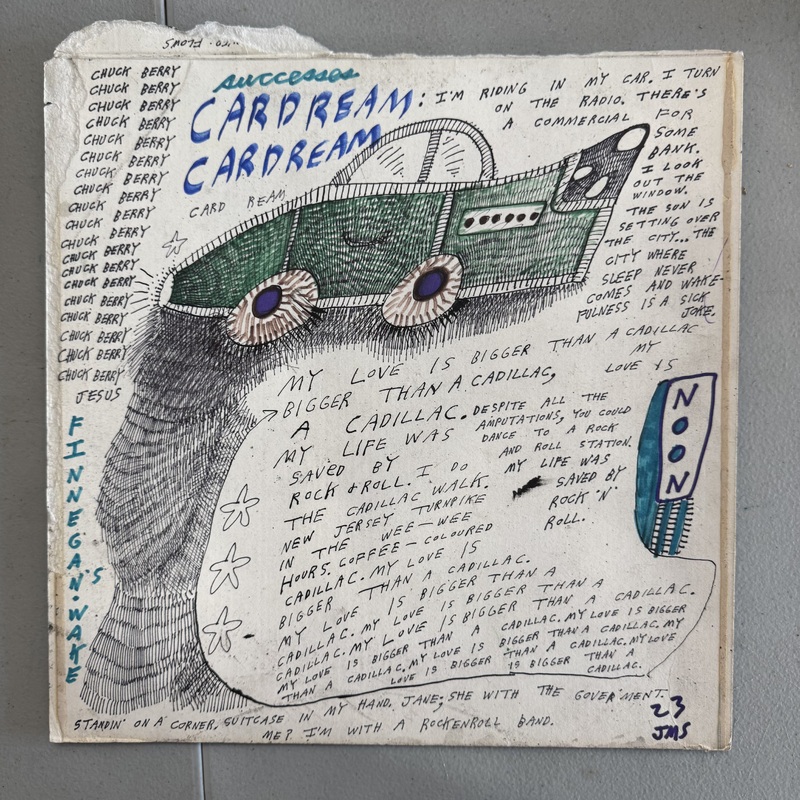 CHUCK BERRY
CHUCK BERRY
CHUCK BERRY
CHUCK BERRY
CHUCK BERRY
CHUCK BERRY
CHUCK BERRY
CHUCK BERRY
CHUCK BERRY
CHUCK BERRY
CHUCK BERRY
CHUCK BERRY
CHUCK BERRY
CHUCK BERRY
CHUCK BERRY
CHUCK BERRY
CHUCK BERRY
CHUCK BERRY
CHUCK BERRY
JESUS
FINNEGAN'S WAKE
successes
CARDREAM:
CARDREAM
CARD REAM
I'M RIDING IN MY CAR. I TURN
ON THE RADIO. THERE'S
A COMMERCIAL FOR
SOME
BANK.
I LOOK
OUT THE
WINDOW.
THE SUN IS
SETTING OVER
THE CITY... THE
CITY WHERE
SLEEP NEVER
COMES AND WAKE-
FULNESS IS A SICK
JOKE.
MY LOVE IS BIGGER THAN A CADILLAC
MY
LOVE IS
BIGGER THAN A CADILLAC,
A CADILLAC.
MY LIFE WAS
SAVED BY
ROCK & ROLL. I DO
THE CADILLAC WALK.
NEW JERSEY TURNPIKE
IN THE WEE-WEE
HOURS. COFFEE-COLOURED
CADILLAC. MY LOVE IS
BIGGER THAN A CADILLAC.
MY LOVE IS BIGGER THAN A
CADILLAC. MY LOVE IS BIGGER THAN A
CADILLAC. MY LOVE IS BIGGER THAN A CADILLAC.
MY LOVE IS BIGGER THAN A CADILLAC. MY LOVE IS BIGGER
THAN A CADILLAC. MY LOVE IS BIGGER THAN A CADILLAC. MY
LOVE IS BIGGER THAN A CADILLAC. MY LOVE
IS BIGGER THAN A CADILLAC.
DESPITE ALL THE
AMPUTATIONS, YOU COULD
DANCE TO A ROCK
AND ROLL STATION.
MY LIFE WAS
SAVED BY
ROCK 'N'
ROLL.
NOON
STANDIN' ON A CORNER, SUITCASE IN MY HAND, JANE; SHE WITH THE GOVER'MENT.
ME? I'M WITH A ROCKENROLL BAND.
23
JMS